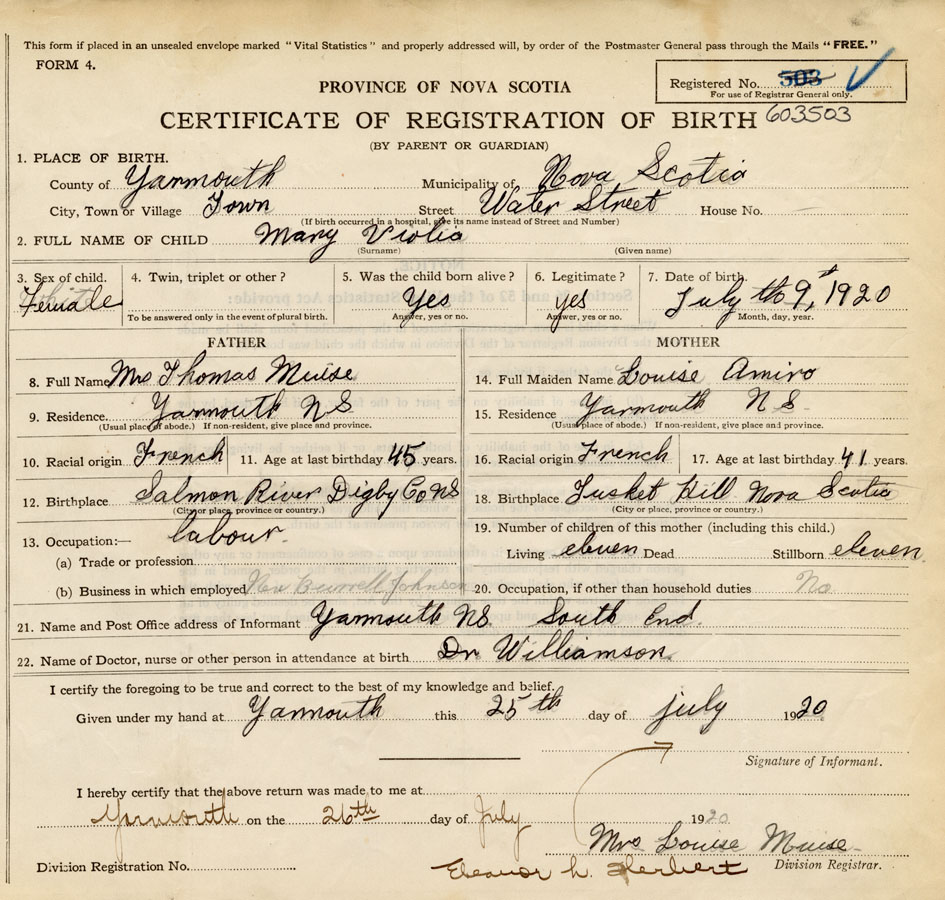 This form if placed in an unsealed envelope marked "Vital Statistics" and properly addressed will, by order of the Postmaster General pass through the Mails "FREE."
FORM 4.
Registered No. 503
For use of Registrar General only.
PROVINCE OF NOVA SCOTIA
CERTIFICATE OF REGISTRATION OF BIRTH 603503
(BY PARENT OR GUARDIAN)
1. PLACE OF BIRTH.
County of Yarmouth Municipality of Nova Scotia
City, Town or Village Town Street Water Street House No.
(If birth occurred in a hospital, give its name instead of Street and Number)
2. FULL NAME OF CHILD Mary Violia
(Surname) (Given name)
3. Sex of child. 4. Twin, triplet or other? 5. Was the child born alive? 6. Legitimate? 7. Date of birth.
Female Yes yes July th 9, 1920
To be answered only in the event of plural birth. Answer, yes or no. Answer, yes or no. Month, day, year.
FATHER
8. Full Name Mrs Thomas Muise
9. Residence. Yarmouth NS
(Usual place of abode.) If non-resident, give place and province.
10. Racial origin French 11. Age at last birthday 45 years.
12. Birthplace Salmon River Digby Co NS
(City or place, province or country.)
13. Occupation:— labour.
(a) Trade or profession
(b) Business in which employed Burrell Johnson
MOTHER
14. Full Maiden Name Louise Amiro
15. Residence Yarmouth N S.
(Usual place of abode.) If non-resident, give place and province.
16. Racial origin French 17. Age at last birthday 41 years.
18. Birthplace Tusket Hill Nova Scotia
(City or place, province or country.)
19. Number of children of this mother (including this child.)
Living eleven Dead Stillborn eleven
20. Occupation, if other than household duties No
21. Name and Post Office address of Informant Yarmouth NS. South End.
22. Name of Doctor, nurse or other person in attendance at birth Dr Williamson.
I certify the foregoing to be true and correct to the best of my knowledge and belief.
Given under my hand at Yarmouth this 25th day of july 1920
Signature of Informant.
I hereby certify that the above return was made to me at
Yarmouth on the 26th day of July 1920
Mrs Louise Muise.
Division Registration No. Eleanor L. Herbert Division Registrar.